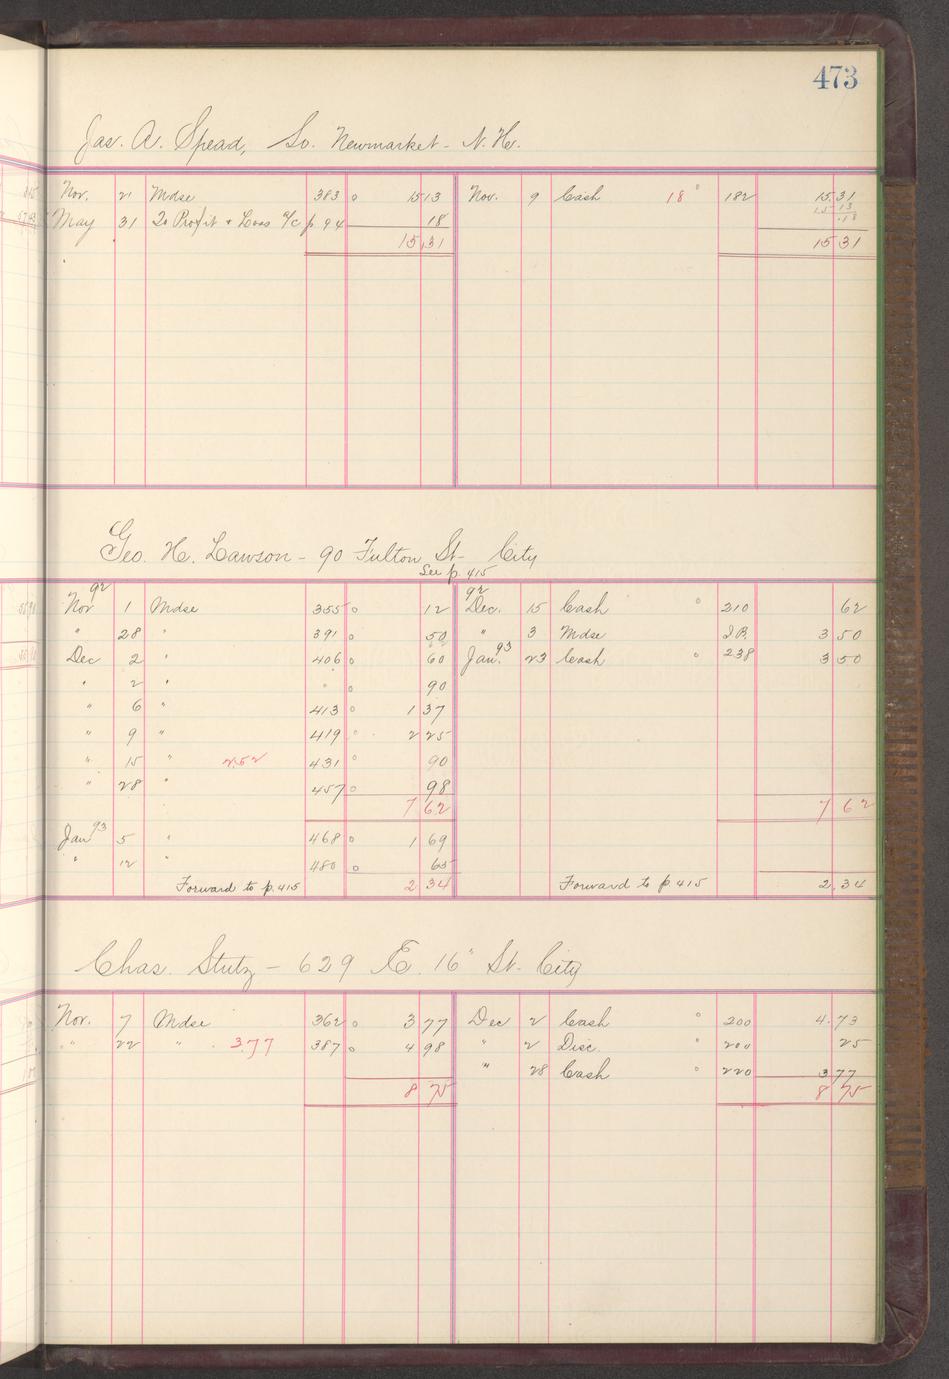 473
Jas. A. Spead, So. Newmarket - N. H.
Nov. 21 Mdse 383 0 15 13 Nov. 9 Cash 18 " 182 15.31
15 13
May 31 To Profit & Loss a/c p 94 18 .18
15.31 15 31
Geo. H. Lawson - 90 Fulton St - City
See p. 415
92 92
Nov 1 Mdse 355 0 12 Dec. 15 Cash " 210 62
" 28 " 391 0 50 " 3 Mdse J.B. 3 50
Dec 2 " 406 0 60 Jan. 93 23 Cash " 238 3 50
" 2 " " 0 90
" 6 " 413 0 1 37
" 9 " 419 " 2 25
" 15 " 2.52 431 0 90
" 28 " 457 0 98
7 62 7 62
Jan 93 5 " 468 0 1 69
" 12 " 480 0 65
Forward to p. 415 2 34 Forward to p 415 2 34
Chas. Stutz - 629 E. 16" St. City
Nov. 7 Mdse 362 0 3 77 Dec 2 Cash " 200 4.73
" 22 " 3.77 387 0 4 98 " 2 Disc. " 200 25
" 28 Cash " 220 3 77
8 75 8 75